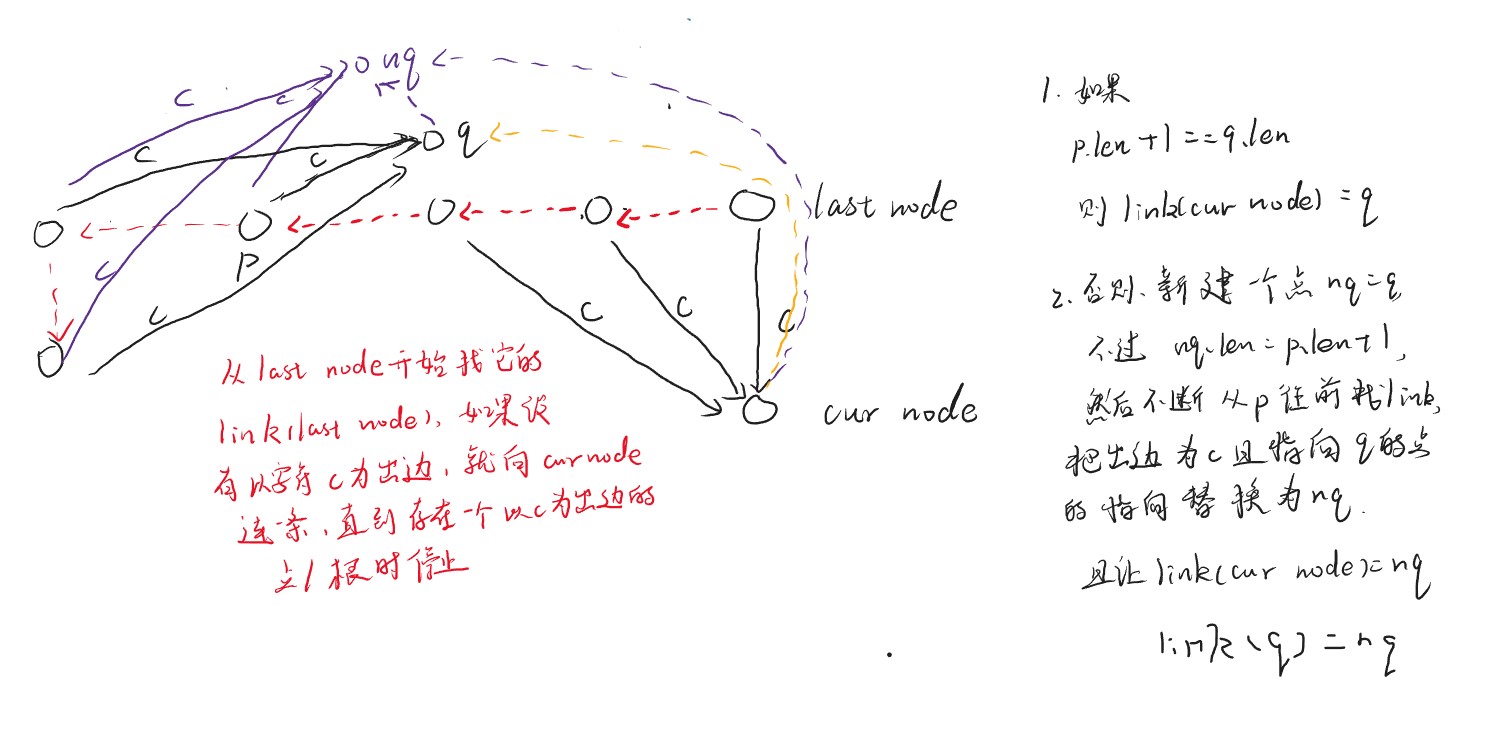 nq
c
c
q
c
c
last node
p
c
c
c
c
c
cur node
从last node开始找它的
link(last node),如果没
有以字符c为出边,就向curnode
连一条,直到存在一个以c为出边的
点/根时停止
1. 如果
p.len+1==q.len
则link(cur node)=q
2. 否则、新建一个点nq=q
不过 nq.len=p.len+1,
然后不断从p往前找link,
把出边为c且指向q的点
的指向替换为nq.
且让link(cur node)=nq
link(q)=nq